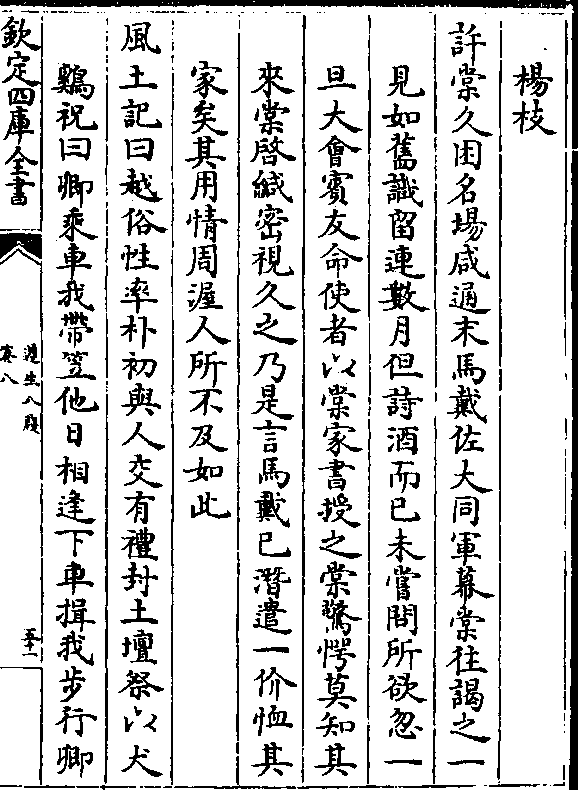 楊枝
許棠久困名場咸通末馬戴佐大同軍幕棠往謁之一
見如舊識留連數月但詩酒而已未嘗問所欲忽一
旦大會賓友命使者以棠家書授之棠驚愕莫知其
來棠啓緘密視久之乃是言馬戴已潛遣一价恤其
家矣其用情周渥人所不及如此
風土記曰越俗性率朴初與人交有禮封土壇祭以犬
鷄祝曰卿乘車我帶笠他日相逢下車揖我步行卿
欽定四庫全書
遵生八牋
卷八
五十一